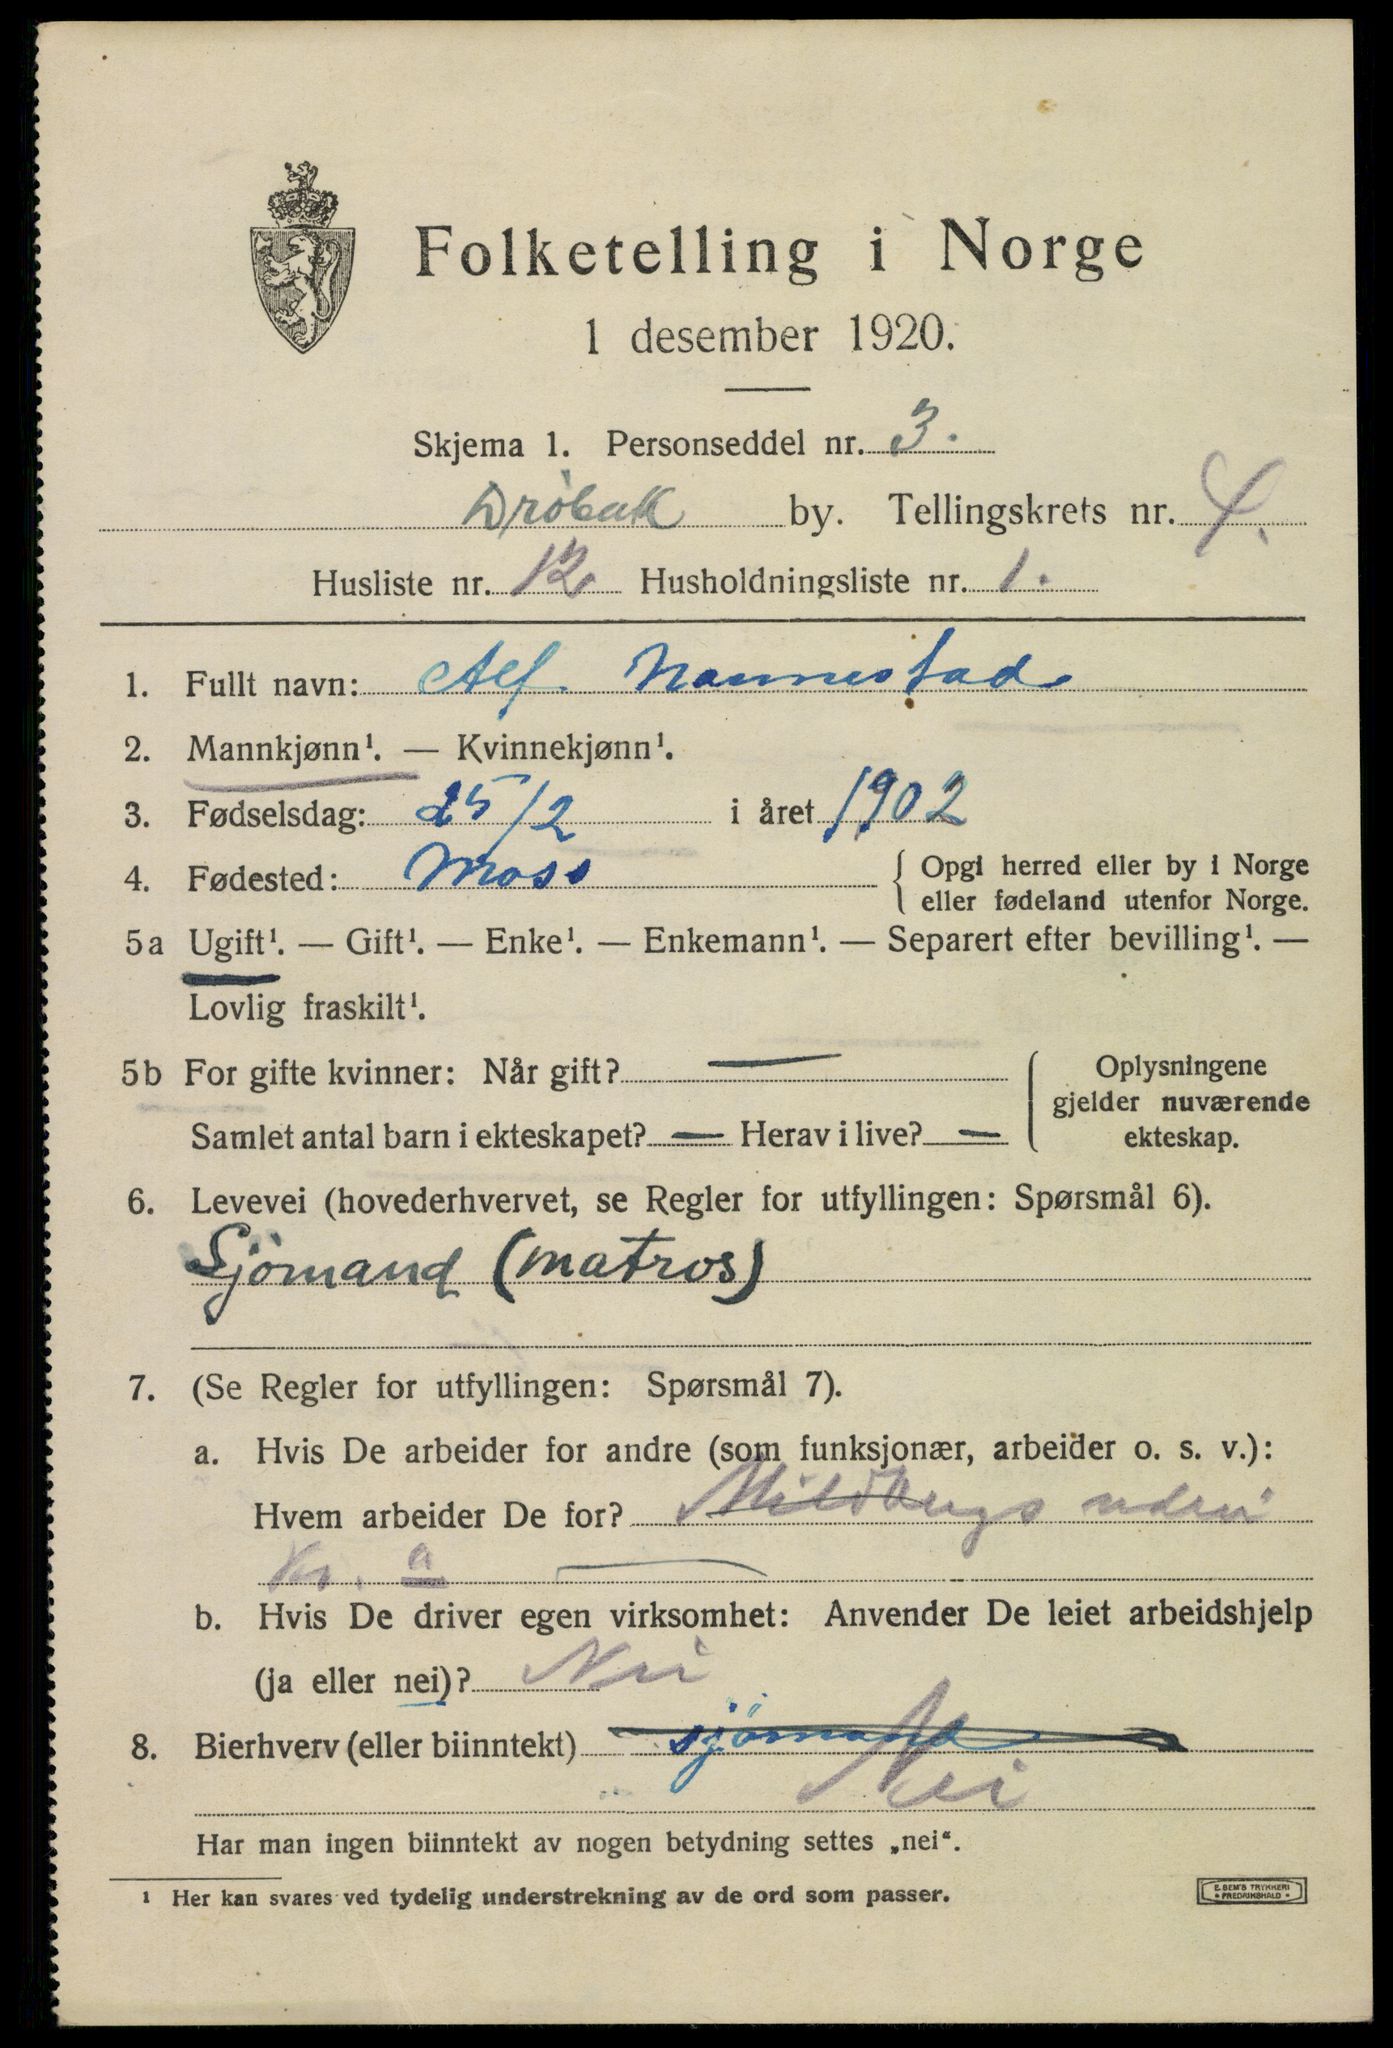 Folketelling i Norge
1 desember 1920.
Skjema 1. Personseddel nr. 3.
Dröbak by. Tellingskrets nr. 4.
Husliste nr. 12 Husholdningsliste nr. 1.
1. Fullt navn: Alf Nannestad
2. Mannkjønn¹. — Kvinnekjønn¹.
3. Fødselsdag: 25/2 i året 1902
4. Fødested: Moss { Opgi herred eller by i Norge
eller fødeland utenfor Norge.
5a Ugift¹. — Gift¹. — Enke¹. — Enkemann¹. — Separert efter bevilling¹. —
Lovlig fraskilt¹.
5b For gifte kvinner: Når gift? —
Samlet antal barn i ekteskapet? — Herav i live? —
{ Oplysningene
gjelder nuværende
ekteskap.
6. Levevei (hovederhvervet, se Regler for utfyllingen: Spørsmål 6).
Sjömand (matros)
7. (Se Regler for utfyllingen: Spørsmål 7).
a. Hvis De arbeider for andre (som funksjonær, arbeider o. s. v.):
Hvem arbeider De for?
Kr. a —
b. Hvis De driver egen virksomhet: Anvender De leiet arbeidshjelp
(ja eller nei)? Nei
8. Bierhverv (eller biinntekt) sjömand
Nei
Har man ingen biinntekt av nogen betydning settes „nei“.
¹ Her kan svares ved tydelig understrekning av de ord som passer.
E. SEM'S TRYKKERI
• FREDRIKSHALD •